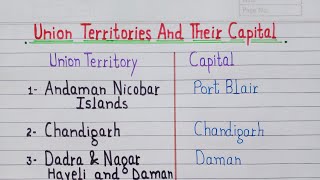 Union Territories And Their Capital
Union Territory Capital
1- Andaman Nicobar Port Blair
Islands
2- Chandigarh Chandigarh
3- Dadra & Nagar Daman
Haveli and Daman